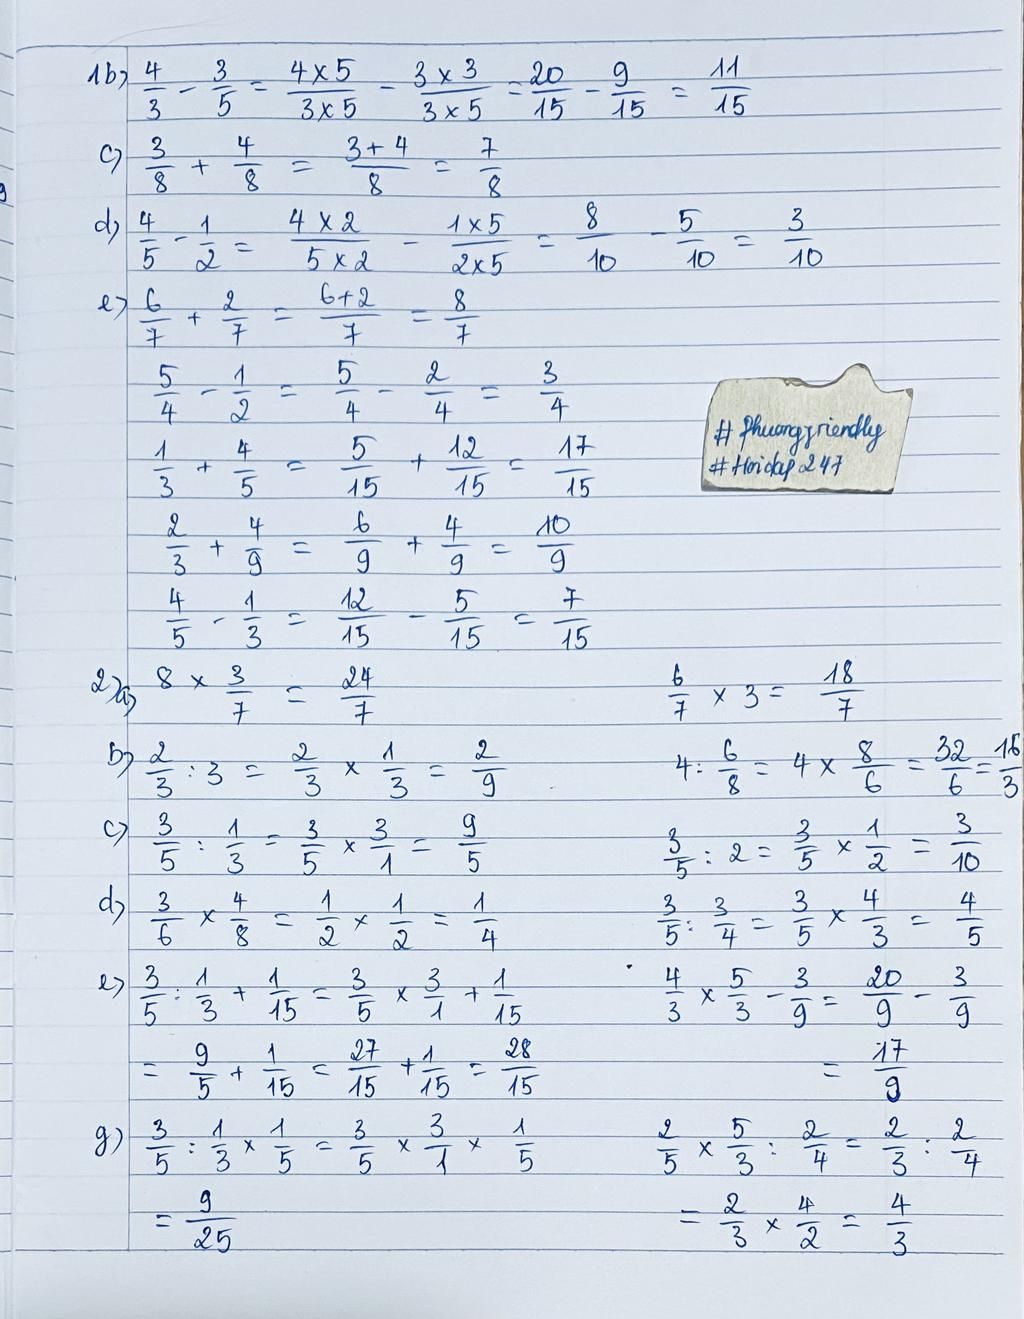 1b) 4/3 - 3/5 = 4×5/3×5 - 3×3/3×5 = 20/15 - 9/15 = 11/15
c) 3/8 + 4/8 = 3+4/8 = 7/8
d) 4/5 - 1/2 = 4×2/5×2 - 1×5/2×5 = 8/10 - 5/10 = 3/10
e) 6/7 + 2/7 = 6+2/7 = 8/7
5/4 - 1/2 = 5/4 - 2/4 = 3/4
1/3 + 4/5 = 5/15 + 12/15 = 17/15
# Phuongfriendly
# Hoidap247
2/3 + 4/9 = 6/9 + 4/9 = 10/9
4/5 - 1/3 = 12/15 - 5/15 = 7/15
2) a) 8 × 3/7 = 24/7
6/7 × 3 = 18/7
b) 2/3 : 3 = 2/3 × 1/3 = 2/9
4 : 6/8 = 4 × 8/6 = 32/6 = 16/3
c) 3/5 : 1/3 = 3/5 × 3/1 = 9/5
3/5 : 2 = 3/5 × 1/2 = 3/10
d) 3/6 × 4/8 = 1/2 × 1/2 = 1/4
3/5 : 3/4 = 3/5 × 4/3 = 4/5
e) 3/5 : 1/3 + 1/15 = 3/5 × 3/1 + 1/15
= 9/5 + 1/15 = 27/15 + 1/15 = 28/15
4/3 × 5/3 - 3/9 = 20/9 - 3/9
= 17/9
g) 3/5 : 1/3 × 1/5 = 3/5 × 3/1 × 1/5
= 9/25
2/5 × 5/3 : 2/4 = 2/3 : 2/4
= 2/3 × 4/2 = 4/3